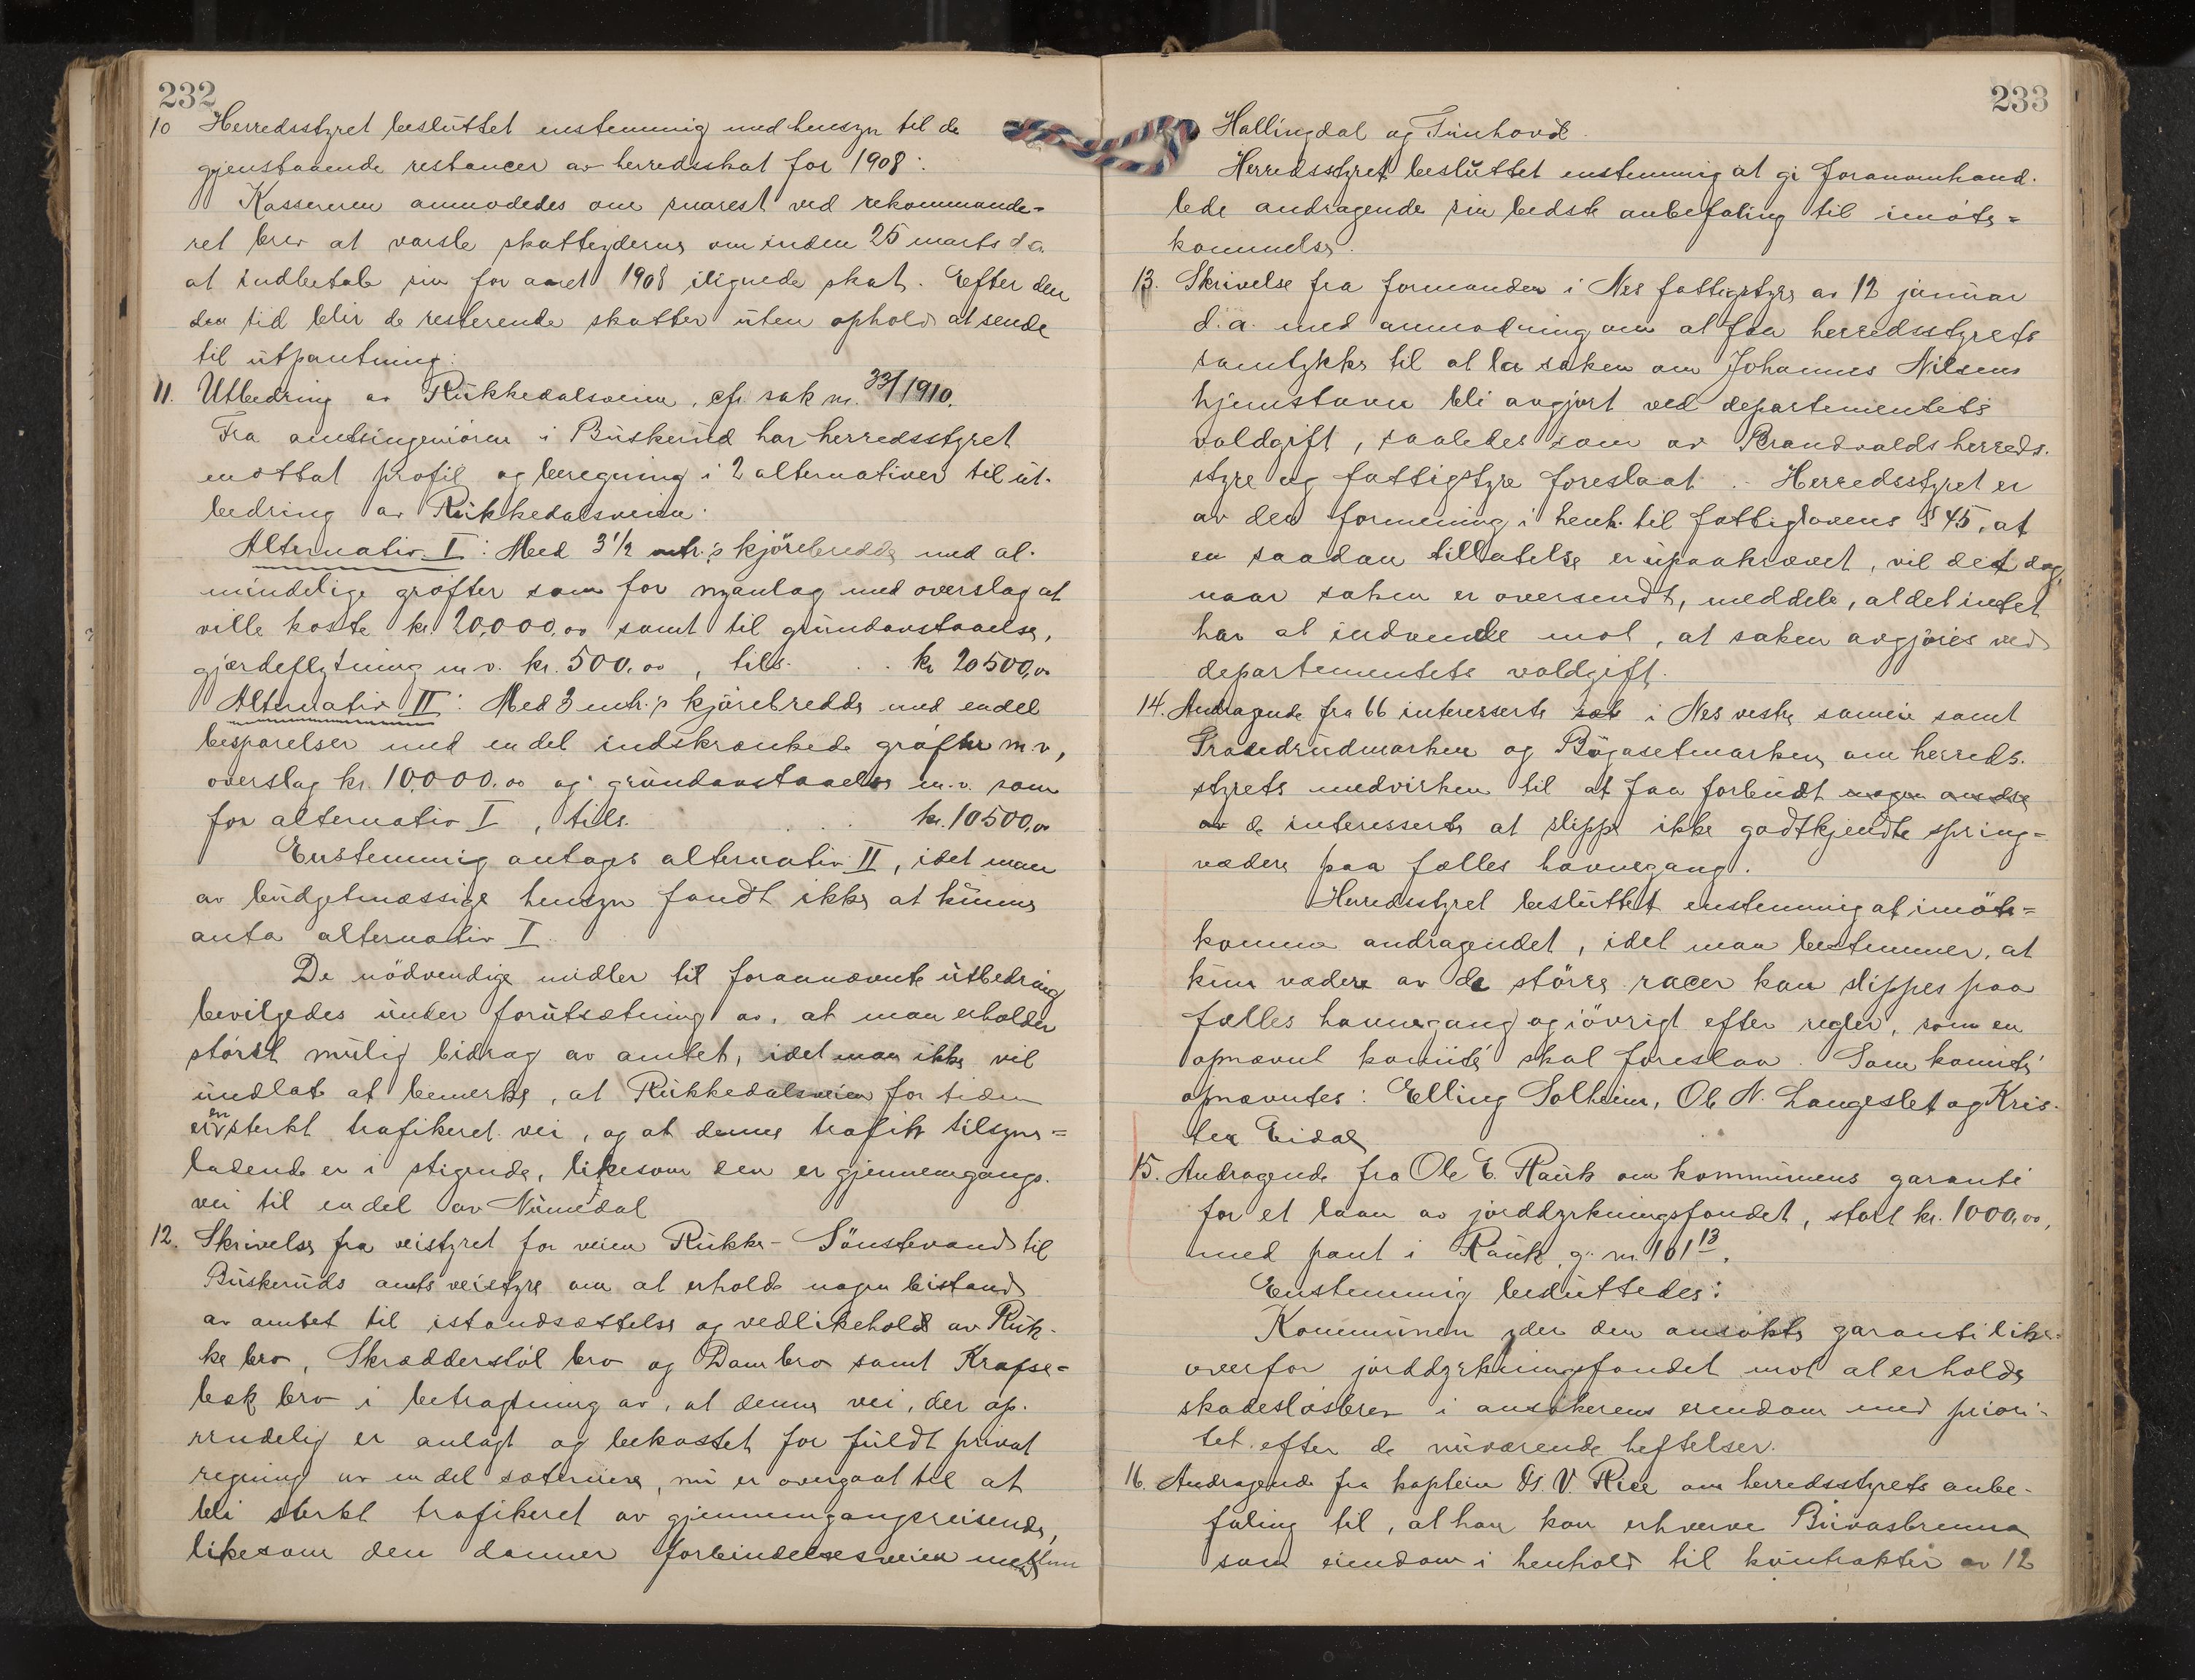 232
10 Herredsstyret besluttet enstemmig med hensyn til de
gjenstaaende restancer av herredsskat for 1908:
Kassereren anmodedes om snarest ved rekommande-
ret brev at varsle skatteyderne om inden 25 marts d.a.
at indbetale sin for aaret 1908 ilignede skat. Efter den
den tid blir de resterende skatter uten ophold at sende
til utpantning.
11. Utbedring av Rukkedalsveien, cfr. sak nr. 33/1910.
Fra amtsingeniøren i Buskerud har herredsstyret
mottat profil og beregning i 2 alternativer til ut-
bedring av Rukkedalsveien.
Alternativ I: Med 3 1/2 mtr.s kjørebredde med al-
mindelige grøfter som for nyanlæg med overslag at
ville koste kr. 20,000,00 samt til grundavstaaelse,
gjærdeflytning m.v. kr. 500,00, tils. . . kr 20500,00
Alternativ II: Med 3 mtr.s kjørebredde med endel
besparelser med en del indskrænkede grøfter m.v,
overslag kr. 10,000,00 og grundavstaaelse m.v. som
for alternativ I, tils. . . . kr. 10500,00
Enstemmig antages alternativ II, idet man
av budgetmæssige hensyn fandt ikke at kunne
anta alternativ I.
De nödvendige midler til forannævnte utbedring
bevilgedes under forutsætning av, at man erholder
størst mulig bidrag av amtet, idet man ikke vil
undlate at bemerke, at Rukkedalsveien for tiden
er en sterkt trafikeret vei, og at denne trafik tilsyne-
ladende er i stigende, likesom den er gjennemgangs-
vei til en del av Numedal
12. Skrivelse fra veistyret for veien Rukke- Sönstevand til
Buskeruds amts veistyre om at erholde nogen bistand
av amtet til istandsættelse og vedlikehold av Ruk-
ke bro, Skrædderstøl bro og Dam bro samt Krapse-
bæk bro i betragtning av, at denne vei, der op-
rindelig er anlagt og bekostet for fuldt privat
regning av en del sætereiere, nu er overgaat til at
bli sterkt trafikeret av gjennemgangsreisende,
likesom den danner forbindelsesveien mellem
233
Hallingdal og Tunhovd.
Herredsstyret besluttet enstemmig at gi foranomhand-
lede andragende sin bedste anbefaling til imøte-
kommelse.
13. Skrivelse fra formanden i Nes fattigstyre av 12 januar
d.a. med anmodning om at faa herredsstyrets
samtykke til at la saken om Johannes Nilsens
hjemstavn bli avgjort ved departementets
voldgift, saaledes som av Brandvalds herreds-
styre og fattigstyre foreslaat. - Herredsstyret er
av den formening i henh. til fattiglovens § 45, at
en saadan tillatelse er upaakrævet, vil det dog,
naar saken er oversendt, meddele, at det intet
har at indvende mot, at saken avgjøres ved
departementets voldgift.
14. Andragende fra 66 interesserte i Nes vestre sameie samt
Trommedrudmarken og Bögasetmarken om herreds-
styrets medvirken til at faa forbudt nogen
av de interesserte at slippe ikke godtkjendte spring-
vædere paa fælles havnegang.
Herredsstyret besluttet enstemmig at imöte-
komme andragendet, idet man bestemmer, at
kun vædere av de större racer kan slippes paa
fælles havnegang og iövrigt efter regler, som en
opnævnt komité skal foreslaa. Som komité
opnævntes: Elling Solheim, Ole N. Langeslet og Kris-
ten Eidal
15. Andragende fra Ole E. Rauk om kommunens garanti
for et laan av jorddyrkningsfondet, stort kr. 1000,00,
med pant i Rauk, g. nr. 101 13.
Enstemmig besluttedes:
Kommunen yder den ansøkte garanti like-
overfor jorddyrkningsfondet mot at erholde
skadesløsbrev i ansøkerens eiendom med priori-
tet efter de nuværende heftelser.
16. Andragende fra kaptein Hs. V. Rice om herredsstyrets anbe-
faling til, at han kan erhverve Buvasbrenna
som eiendom i henhold til kontrakter av 12